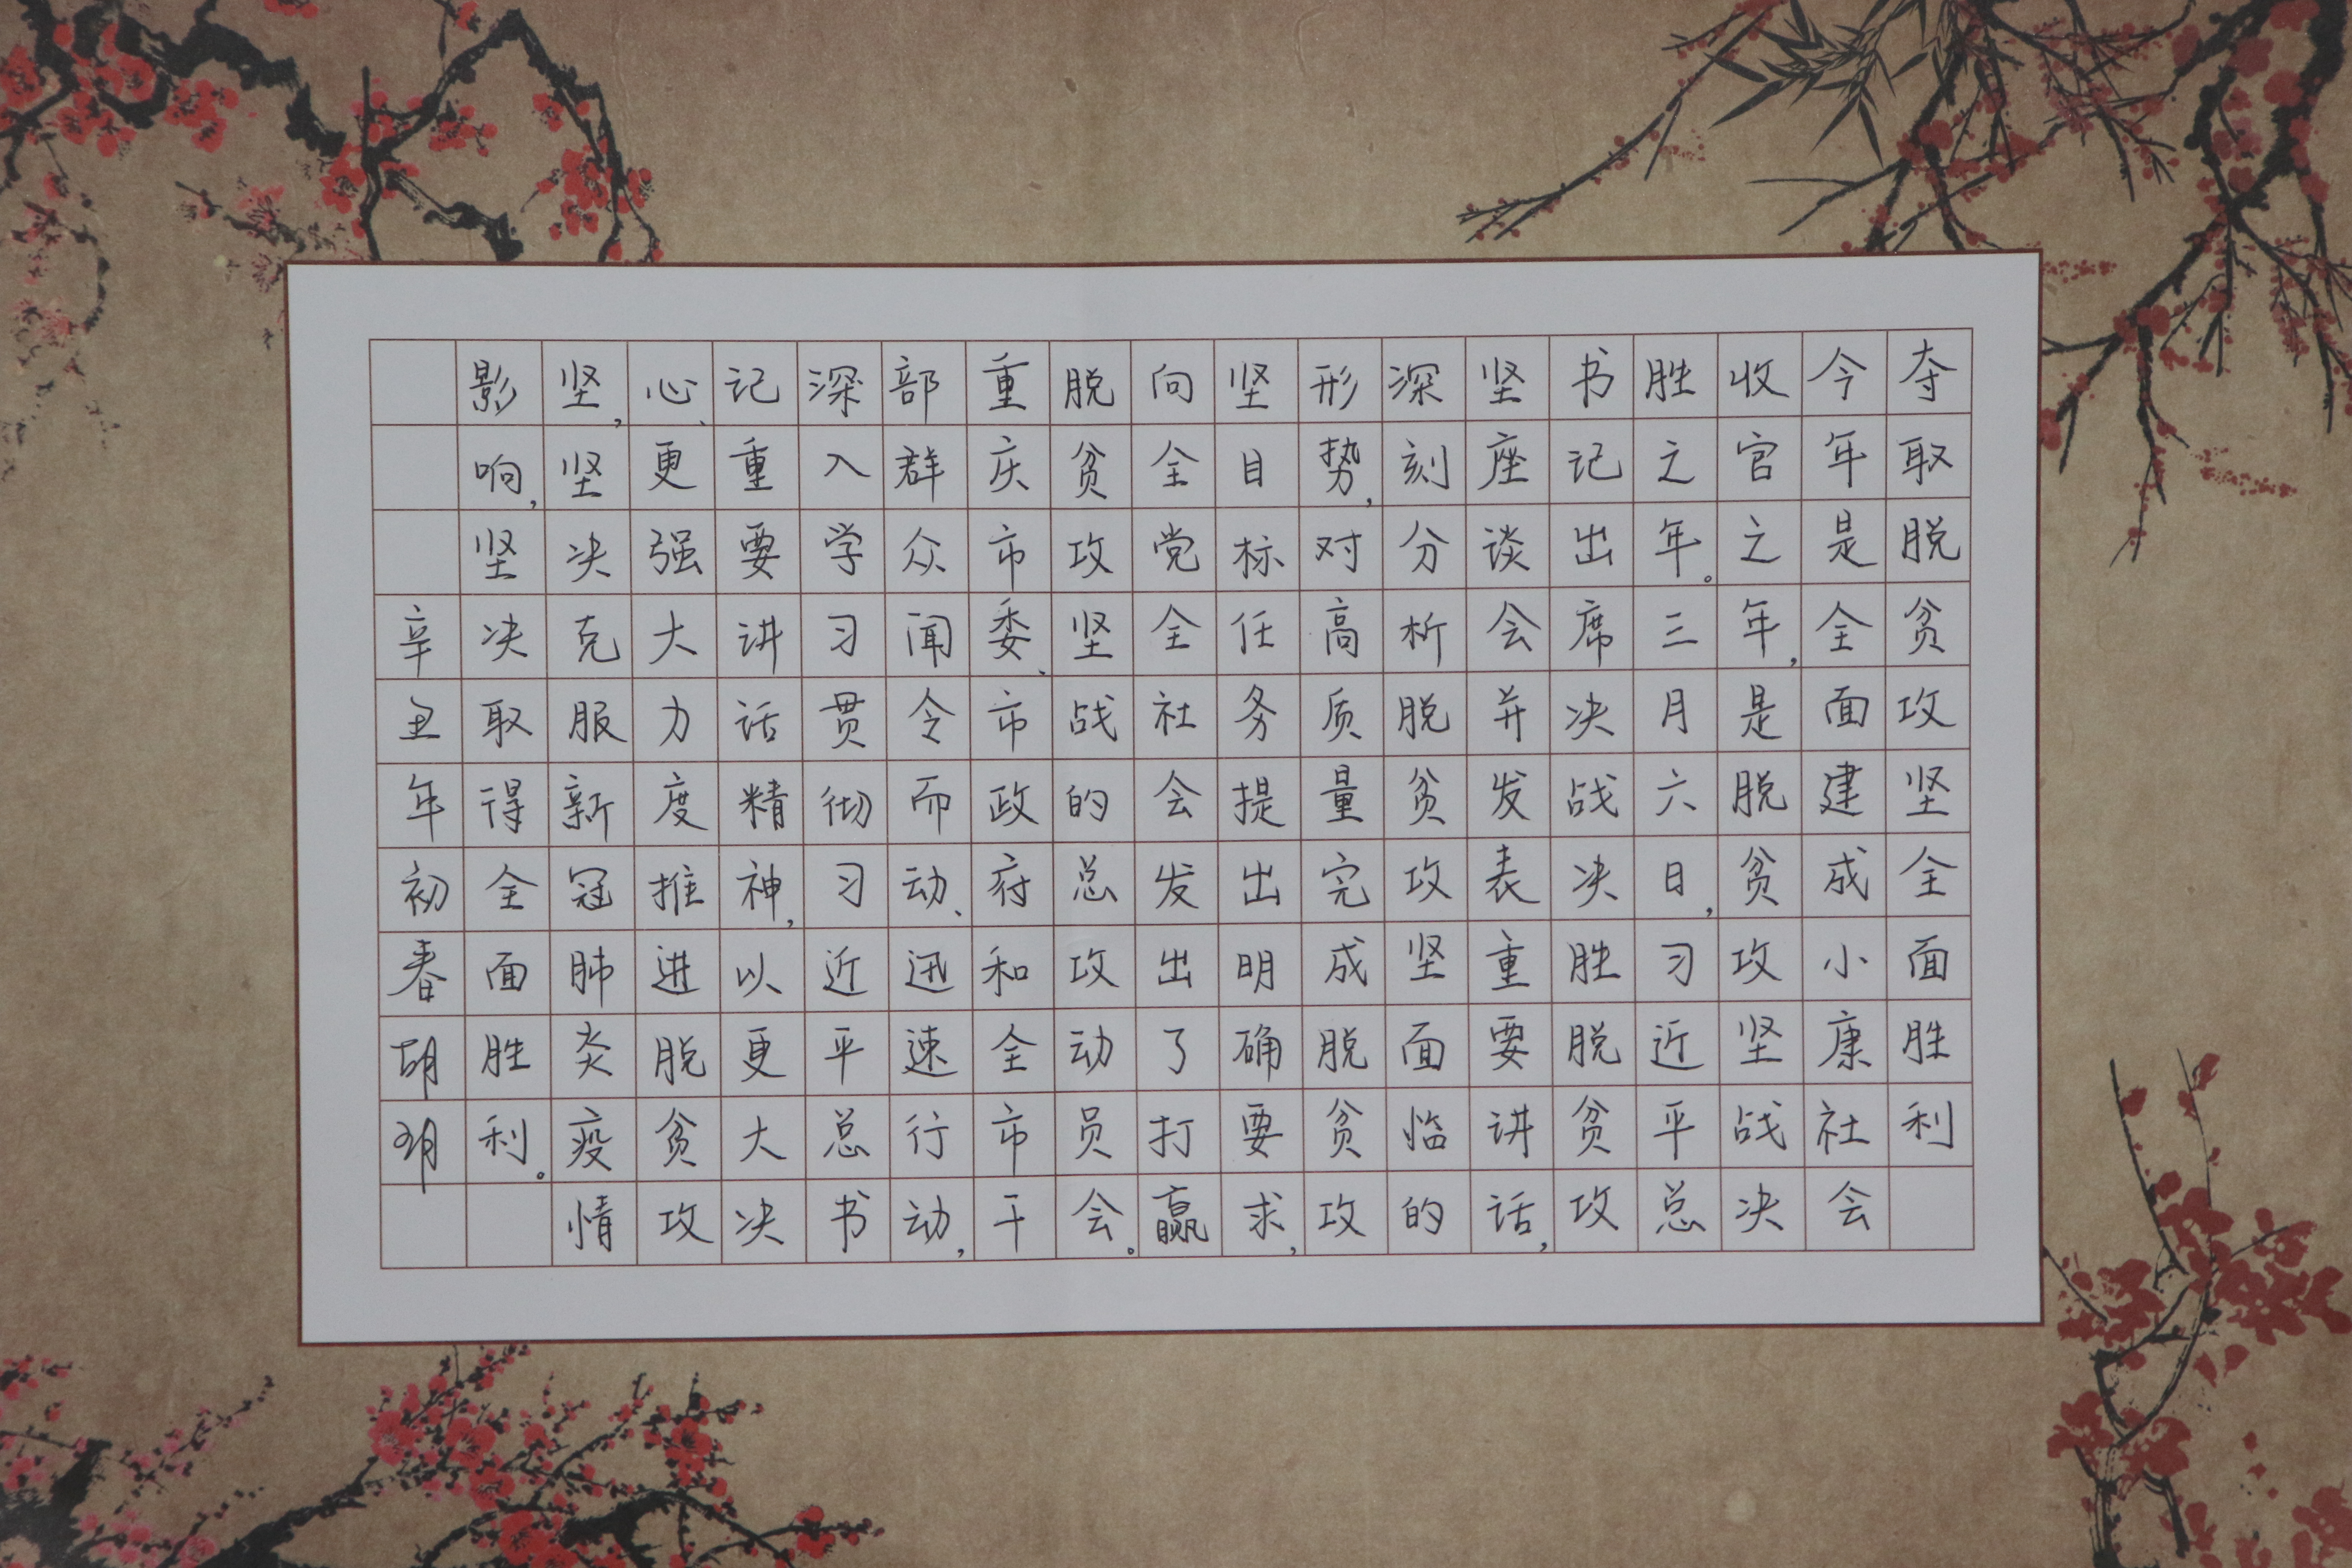 夺取脱贫攻坚全面胜利
今年是全面建成小康社会
收官之年,是脱贫攻坚战决
胜之年。三月六日,习近平总
书记出席决战决胜脱贫攻
坚座谈会并发表重要讲话,
深刻分析脱贫攻坚面临的
形势,对高质量完成脱贫攻
坚目标任务提出明确要求,
向全党全社会发出了打赢
脱贫攻坚战的总攻动员会。
重庆市委、市政府和全市干
部群众闻令而动、迅速行动,
深入学习贯彻习近平总书
记重要讲话精神,以更大决
心、更强大力度推进脱贫攻
坚,坚决克服新冠肺炎疫情
影响,坚决取得全面胜利。
辛丑年初春胡玥